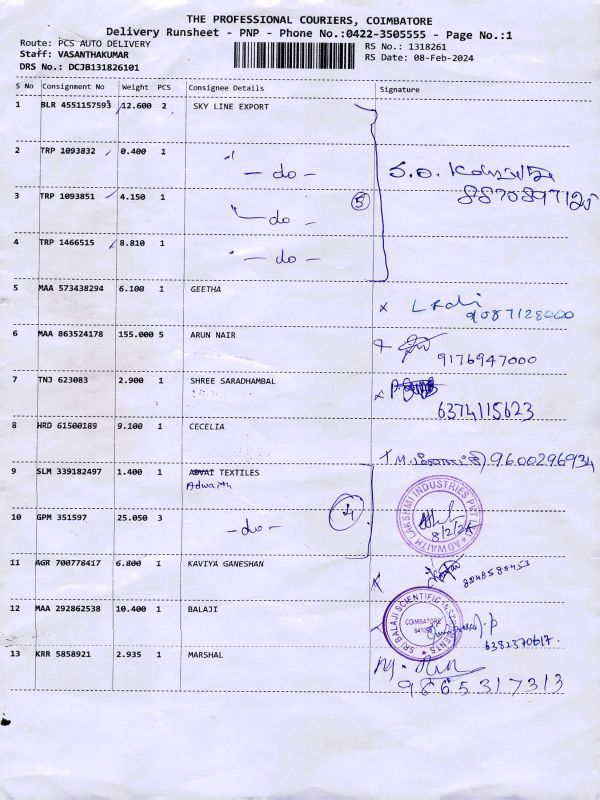 THE PROFESSIONAL COURIERS, COIMBATORE
Delivery Runsheet - PNP - Phone No.:0422-3505555 - Page No.:1
Route: PCS AUTO DELIVERY
RS No.: 1318261
Staff: VASANTHAKUMAR
RS Date: 08-Feb-2024
DRS No.: DCJB131826101
S No Consignment No Weight PCS Consignee Details Signature
1 BLR 4551157593 12.600 2 SKY LINE EXPORT
2 TRP 1093832 0.400 1 - do -
8870897125
3 TRP 1093851 4.150 1 - do - 5
4 TRP 1466515 8.810 1 - do -
5 MAA 573438294 6.100 1 GEETHA
9087128000
6 MAA 863524178 155.000 5 ARUN NAIR
9176947000
7 TNJ 623083 2.900 1 SHREE SARADHAMBAL
6374115623
8 HRD 61500189 9.100 1 CECELIA
9600296934
9 SLM 339182497 1.400 1 ADVAT TEXTILES
Adwaith
ADWAITH LAKSHMI INDUSTRIES PVT LTD
8/2/24
4
10 GPM 351597 25.050 3 - do -
11 AGR 700778417 6.800 1 KAVIYA GANESHAN
12 MAA 292862538 10.400 1 BALAJI
SRI BALAJI SCIENTIFIC INSTRUMENTS
COIMBATORE
6382370617.
13 KRR 5858921 2.935 1 MARSHAL
9865317313